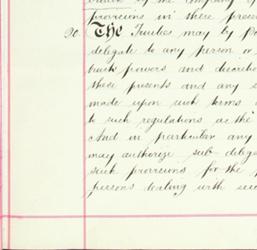 by the Company
provisions in these
90. The Trustees may by Po
delegate to any person or
such powers and discretion
these presents and any s
made upon such terms a
to such regulations as the
And in particular any
may authorize sub-delega
such provisions for the p
persons dealing with